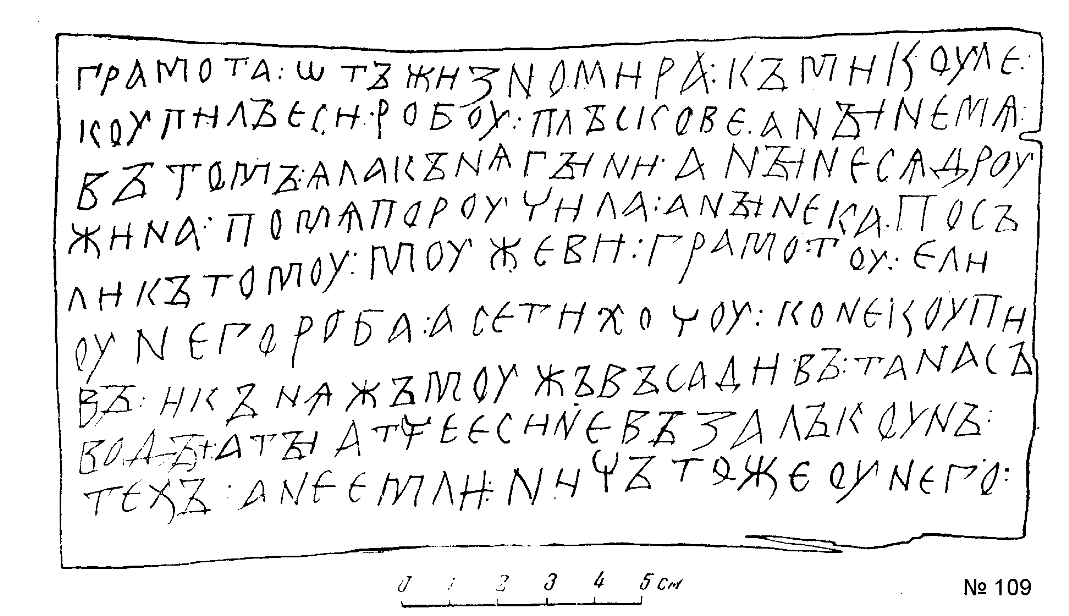 грамота : ѡтъ жизномира : къ микоуле :
коупилъ еси : робоу : плъскове · а нꙑне мѧ :
въ томъ : ѧла кънѧгꙑни : а нꙑне сѧ дроу
жина : по мѧ пороучила : а нꙑне ка · посъ
ли къ томоу : моужеви : грамотоу : ели
оу него роба : а се ти хочоу : коне коупи
въ : и кънѧжъ моужъ въсадивъ : та на съ
водꙑ : а тꙑ атче еси не възалъ коунъ :
техъ : а не емли : ничъ тоже оу него :
0 1 2 3 4 5 см
№ 109